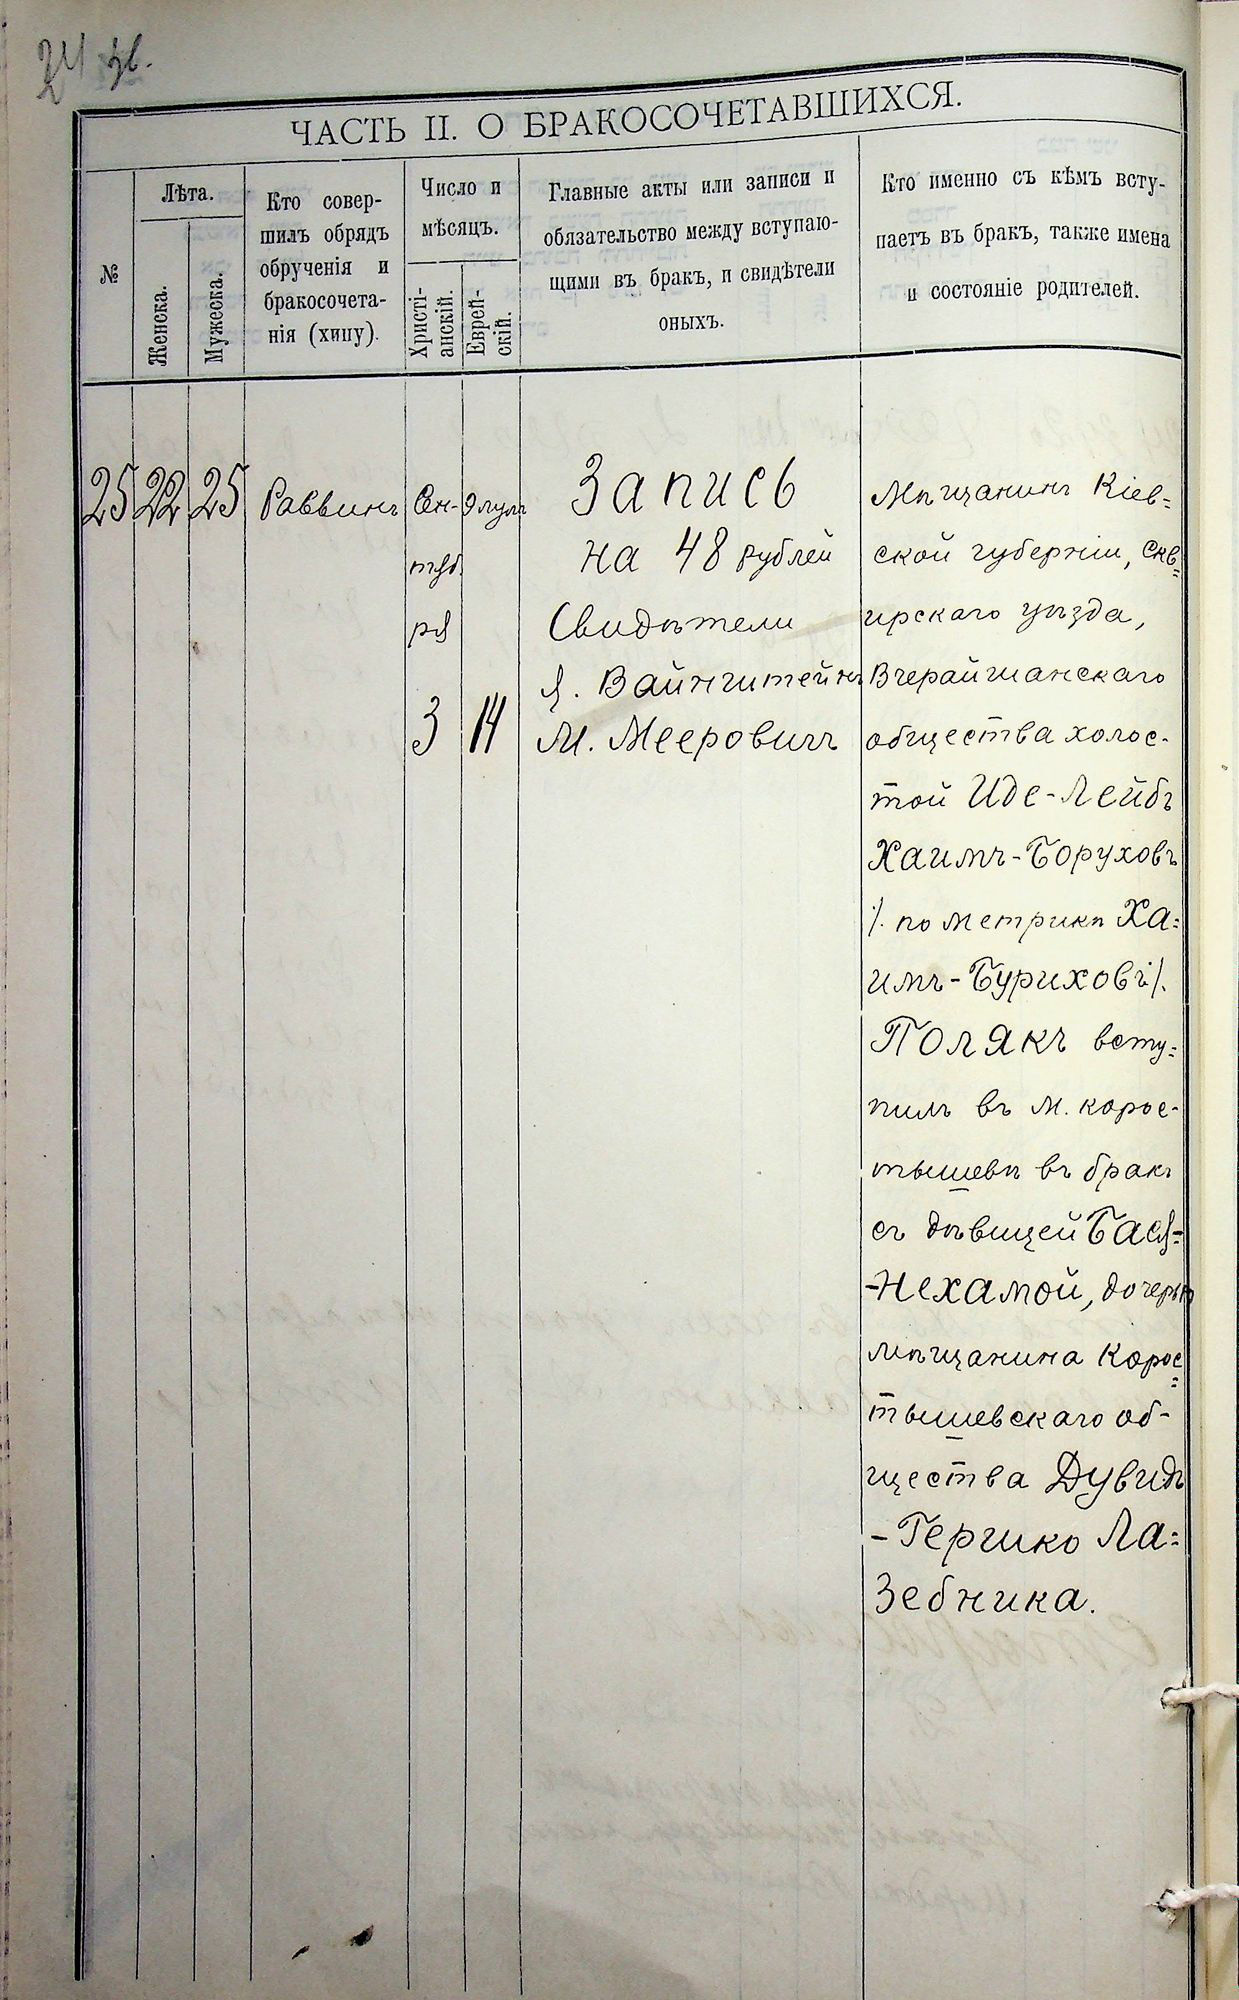 24 зв.
ЧАСТЬ II. О БРАКОСОЧЕТАВШИХСЯ.
№
Лѣта.
Женска.
Мужеска.
Кто совер-
шилъ обрядъ
обрученія и
бракосочета-
нія (хипу).
Число и
мѣсяцъ.
Христі-
анскій.
Еврей-
скій.
Главные акты или записи и
обязательство между вступаю-
щими въ бракъ, и свидѣтели
оныхъ.
Кто именно съ кѣмъ всту-
паетъ въ бракъ, также имена
и состояніе родителей.
25
22
25
Раввинъ
Сен-
тяб.
ря
3
Элулъ
14
Запись
на 48 рублей
Свидѣтели
Я. Вайнштейнъ
М. Мееровичъ
Мѣщанинъ Кіев=
ской губерніи, Скв=
ирскаго уѣзда,
Вчерайшанскаго
общества холос-
той Иде-Лейбъ
Хаимъ-Боруховъ
/. по метрикѣ Ха=
имъ-Буриховъ/.
Полякъ всту=
пилъ въ м. Корос-
тышевѣ въ бракъ
съ дѣвицей Бася=
-Нехамой, дочерью
мѣщанина Корос=
тышевскаго об-
щества Дувидъ
-Гершко Ла=
зебника.